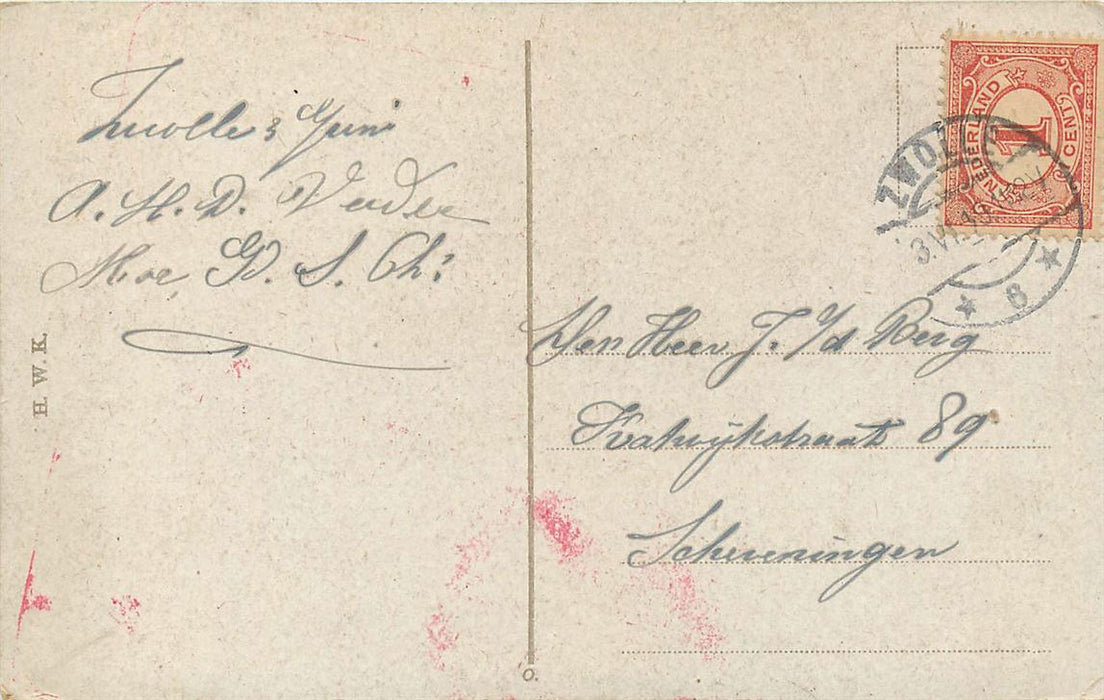 Zwolle 3 Juni
A. H. D. Verder
Moe, G. S. Ch:
H. W. K.
NEDERLAND
1
CENT
ZWOLLE
3.VI.19
6
Den Heer J. v/d Berg
Katwijkstraat 89
Scheveningen
O.